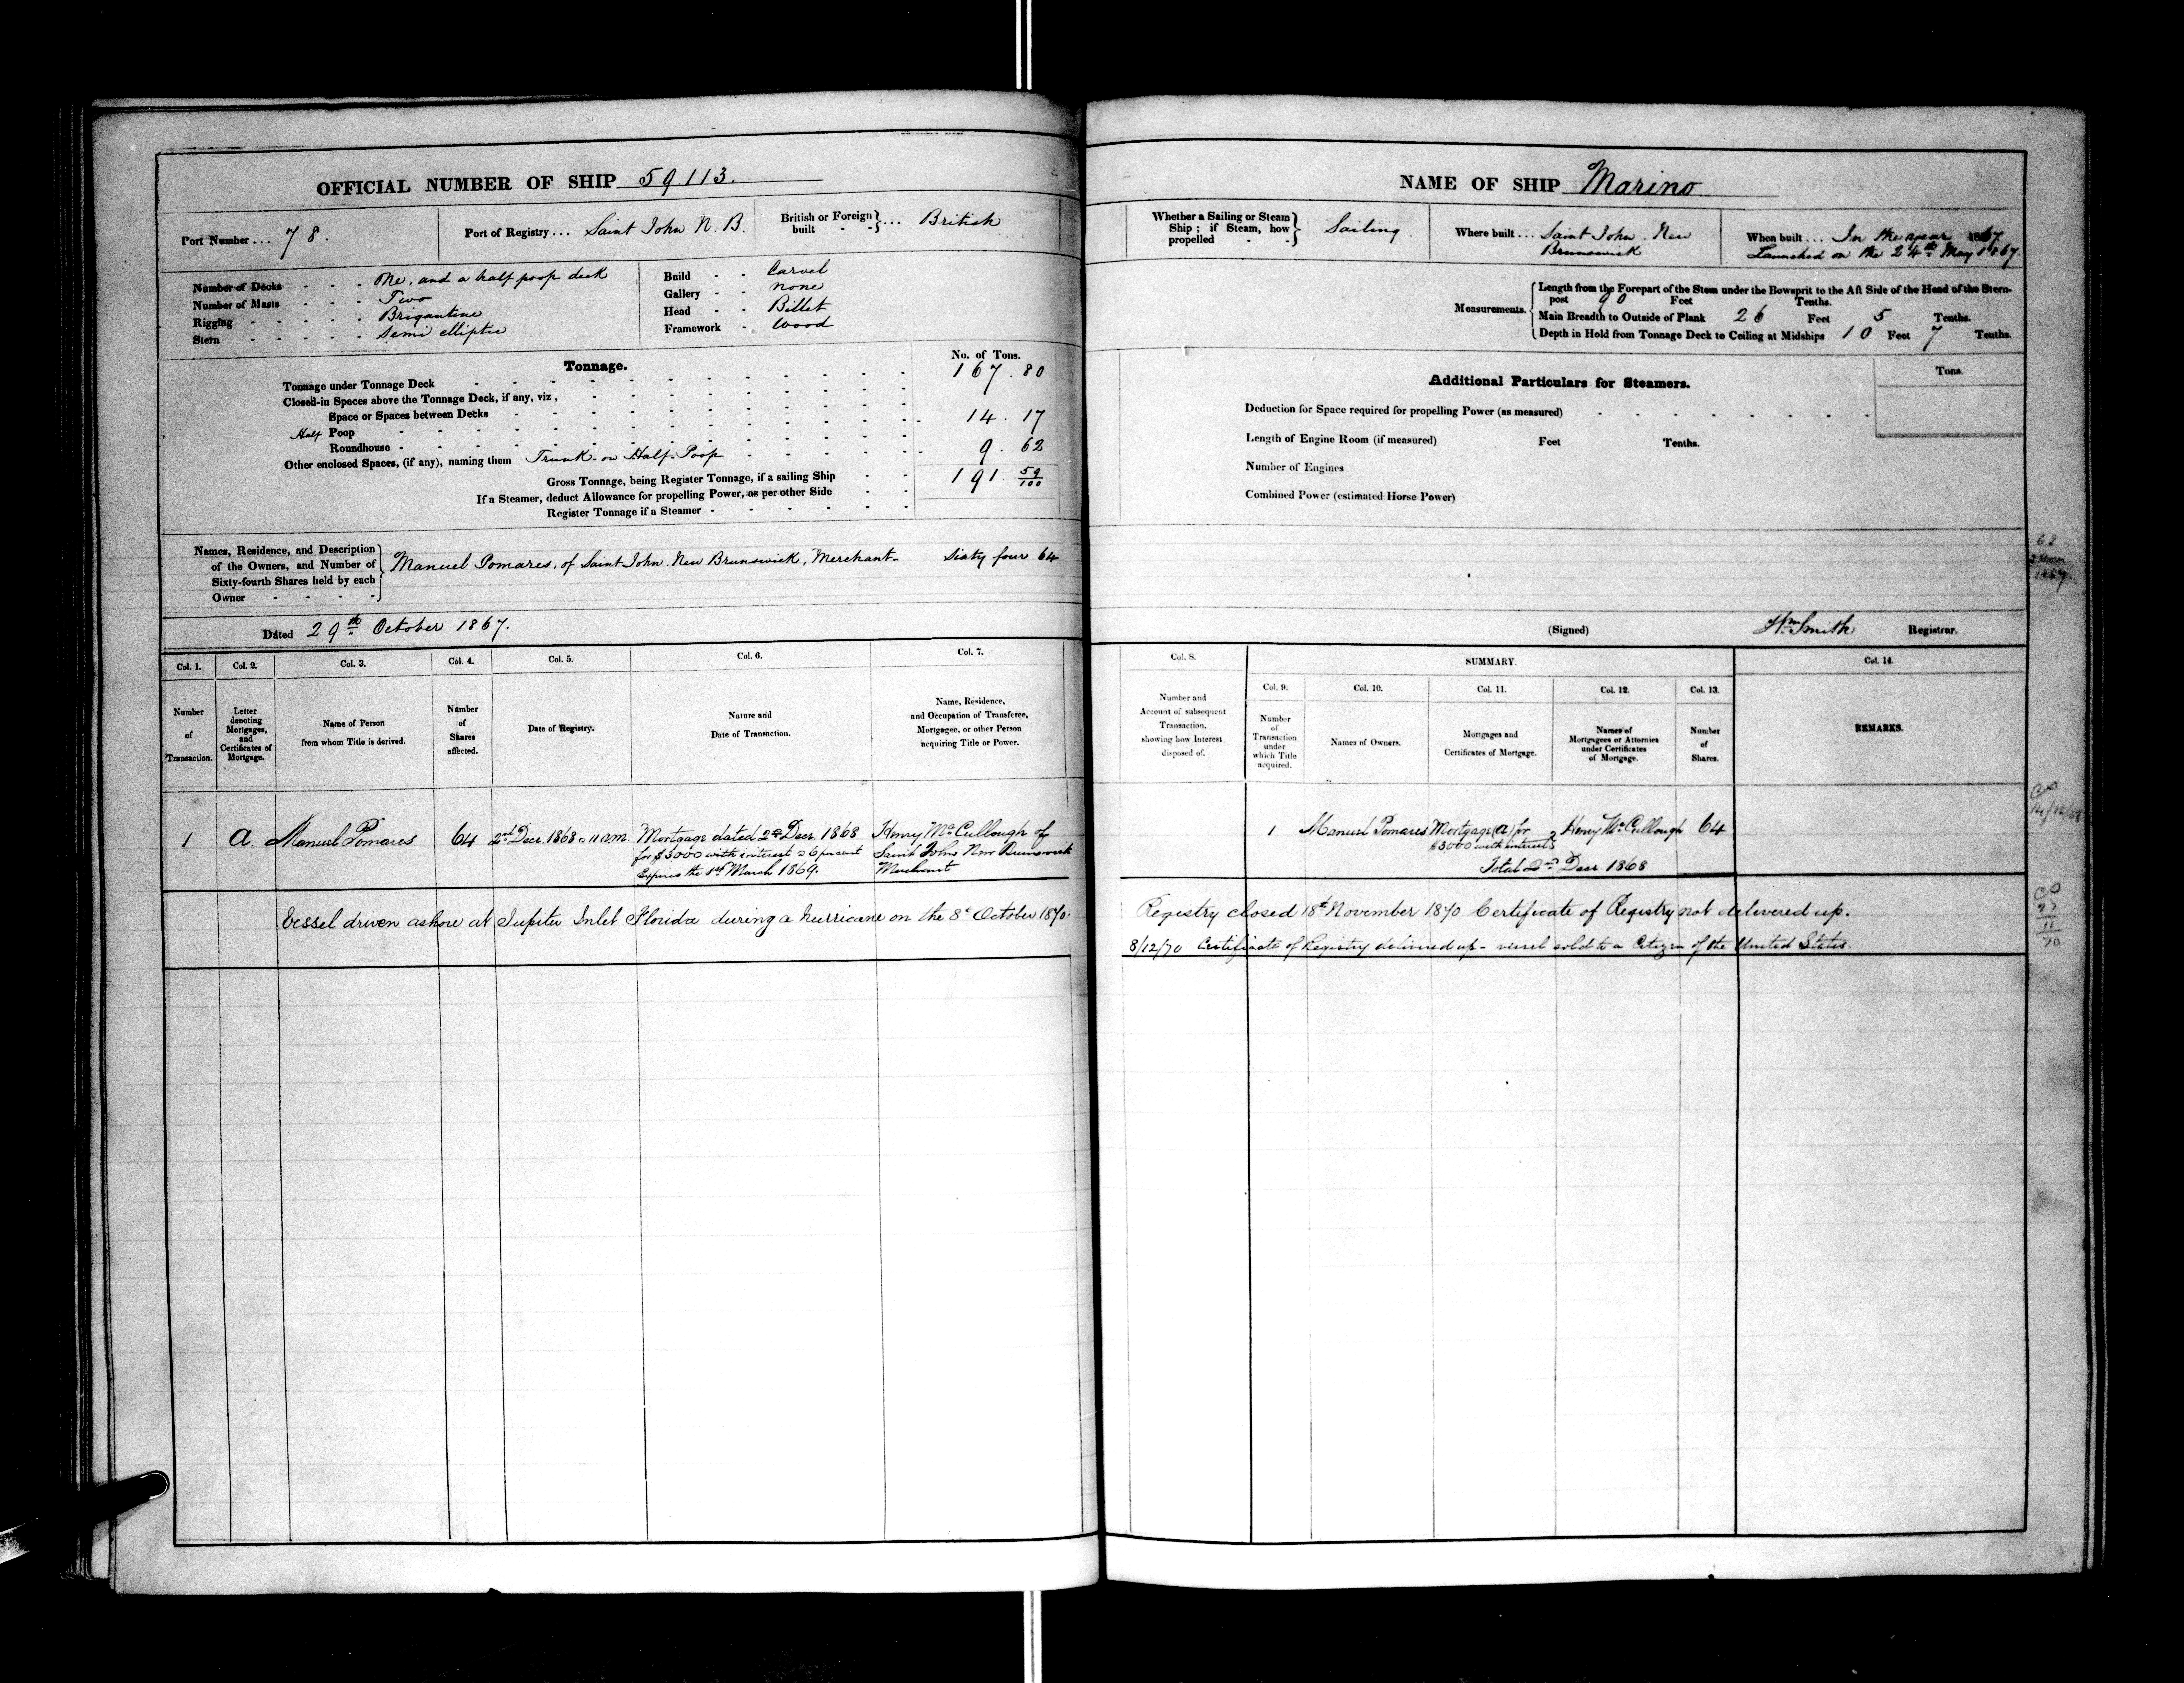 OFFICIAL NUMBER OF SHIP 59.113.
Port Number ... 78.
Port of Registry ... Saint John N. B.
British or Foreign built - - } ... British
Number of Decks - - - One, and a half poop deck
Number of Masts - - - Two
Rigging - - - - - Brigantine
Stern - - - - - Semi elliptic
Build - - Carvel
Gallery - - none
Head - - Billet
Framework - Wood
Tonnage.
No. of Tons.
Tonnage under Tonnage Deck 167.80
Closed-in Spaces above the Tonnage Deck, if any, viz,
Space or Spaces between Decks
Half Poop 14.17
Roundhouse
Other enclosed Spaces, (if any), naming them Trunk on Half-Poop 9.62
Gross Tonnage, being Register Tonnage, if a sailing Ship 191 59/100
If a Steamer, deduct Allowance for propelling Power, as per other Side
Register Tonnage if a Steamer
Names, Residence, and Description of the Owners, and Number of Sixty-fourth Shares held by each Owner
Manuel Pomares, of Saint John, New Brunswick, Merchant - Sixty four 64
Dated 29th October 1867.
Col. 1. Col. 2. Col. 3. Col. 4. Col. 5. Col. 6. Col. 7.
Number of Transaction.
Letter denoting Mortgages, and Certificates of Mortgage.
Name of Person from whom Title is derived.
Number of Shares affected.
Date of Registry.
Nature and Date of Transaction.
Name, Residence, and Occupation of Transferee, Mortgagee, or other Person acquiring Title or Power.
1 A. Manuel Pomares 64 2nd Decr. 1868 @ 11 a.m. Mortgage dated 2nd Decr. 1868 Henry McCullough of
for $3000 with interest @ 6 per cent Saint John New Brunswick
Expires the 1st March 1869. Merchant
Vessel driven ashore at Jupiter Inlet Florida during a hurricane on the 8th October 1870.
NAME OF SHIP Marino
Whether a Sailing or Steam Ship; if Steam, how propelled - - } Sailing
Where built ... Saint John, New
Brunswick
When built ... In the year 1867
Launched on the 24th May 1867.
Measurements.
Length from the Forepart of the Stem under the Bowsprit to the Aft Side of the Head of the Stern-
post 90 Feet Tenths.
Main Breadth to Outside of Plank 26 Feet 5 Tenths.
Depth in Hold from Tonnage Deck to Ceiling at Midships 10 Feet 7 Tenths.
Additional Particulars for Steamers.
Tons.
Deduction for Space required for propelling Power (as measured)
Length of Engine Room (if measured) Feet Tenths.
Number of Engines
Combined Power (estimated Horse Power)
(Signed) Wm Smith Registrar.
Col. 8. SUMMARY. Col. 14.
Col. 9. Col. 10. Col. 11. Col. 12. Col. 13.
Number and Account of subsequent Transaction, showing how Interest disposed of.
Number of Transaction under which Title acquired.
Names of Owners.
Mortgages and Certificates of Mortgage.
Names of Mortgagees or Attornies under Certificates of Mortgage.
Number of Shares.
REMARKS.
1 Manuel Pomares Mortgage (A) for Henry McCullough 64
$3000 with interest
Total 2nd Decr 1868
14/12/68
Registry closed 18th November 1870 Certificate of Registry not delivered up.
8/12/70 Certificate of Registry delivered up - vessel sold to a Citizen of the United States.